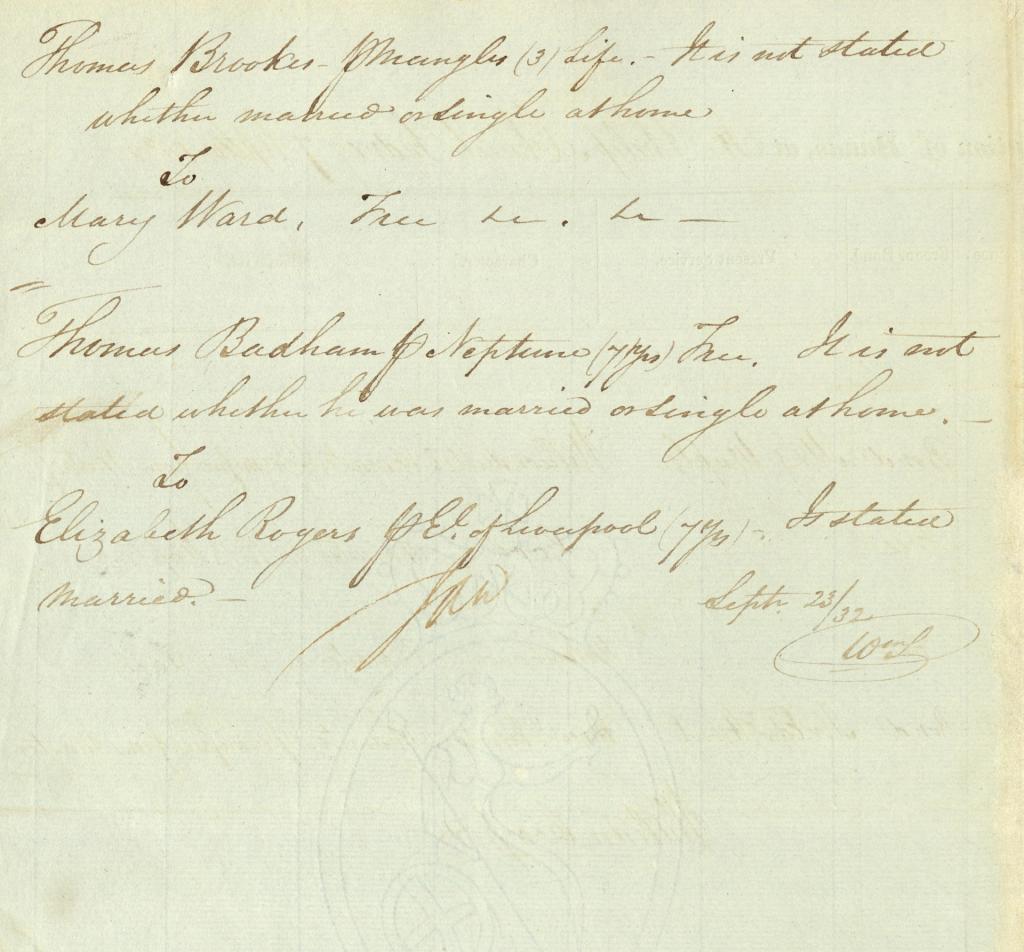 Thomas Brookes - p Mangles (3) Life. - It is not stated
whether married or single at home
To
Mary Ward, Free
Thomas Badham p Neptune (7 yrs) Free. It is not
stated whether he was married or single at home. -
To
Elizabeth Rogers p El. of Liverpool (7 yrs) - Is stated
married. -
Septr. 23/32